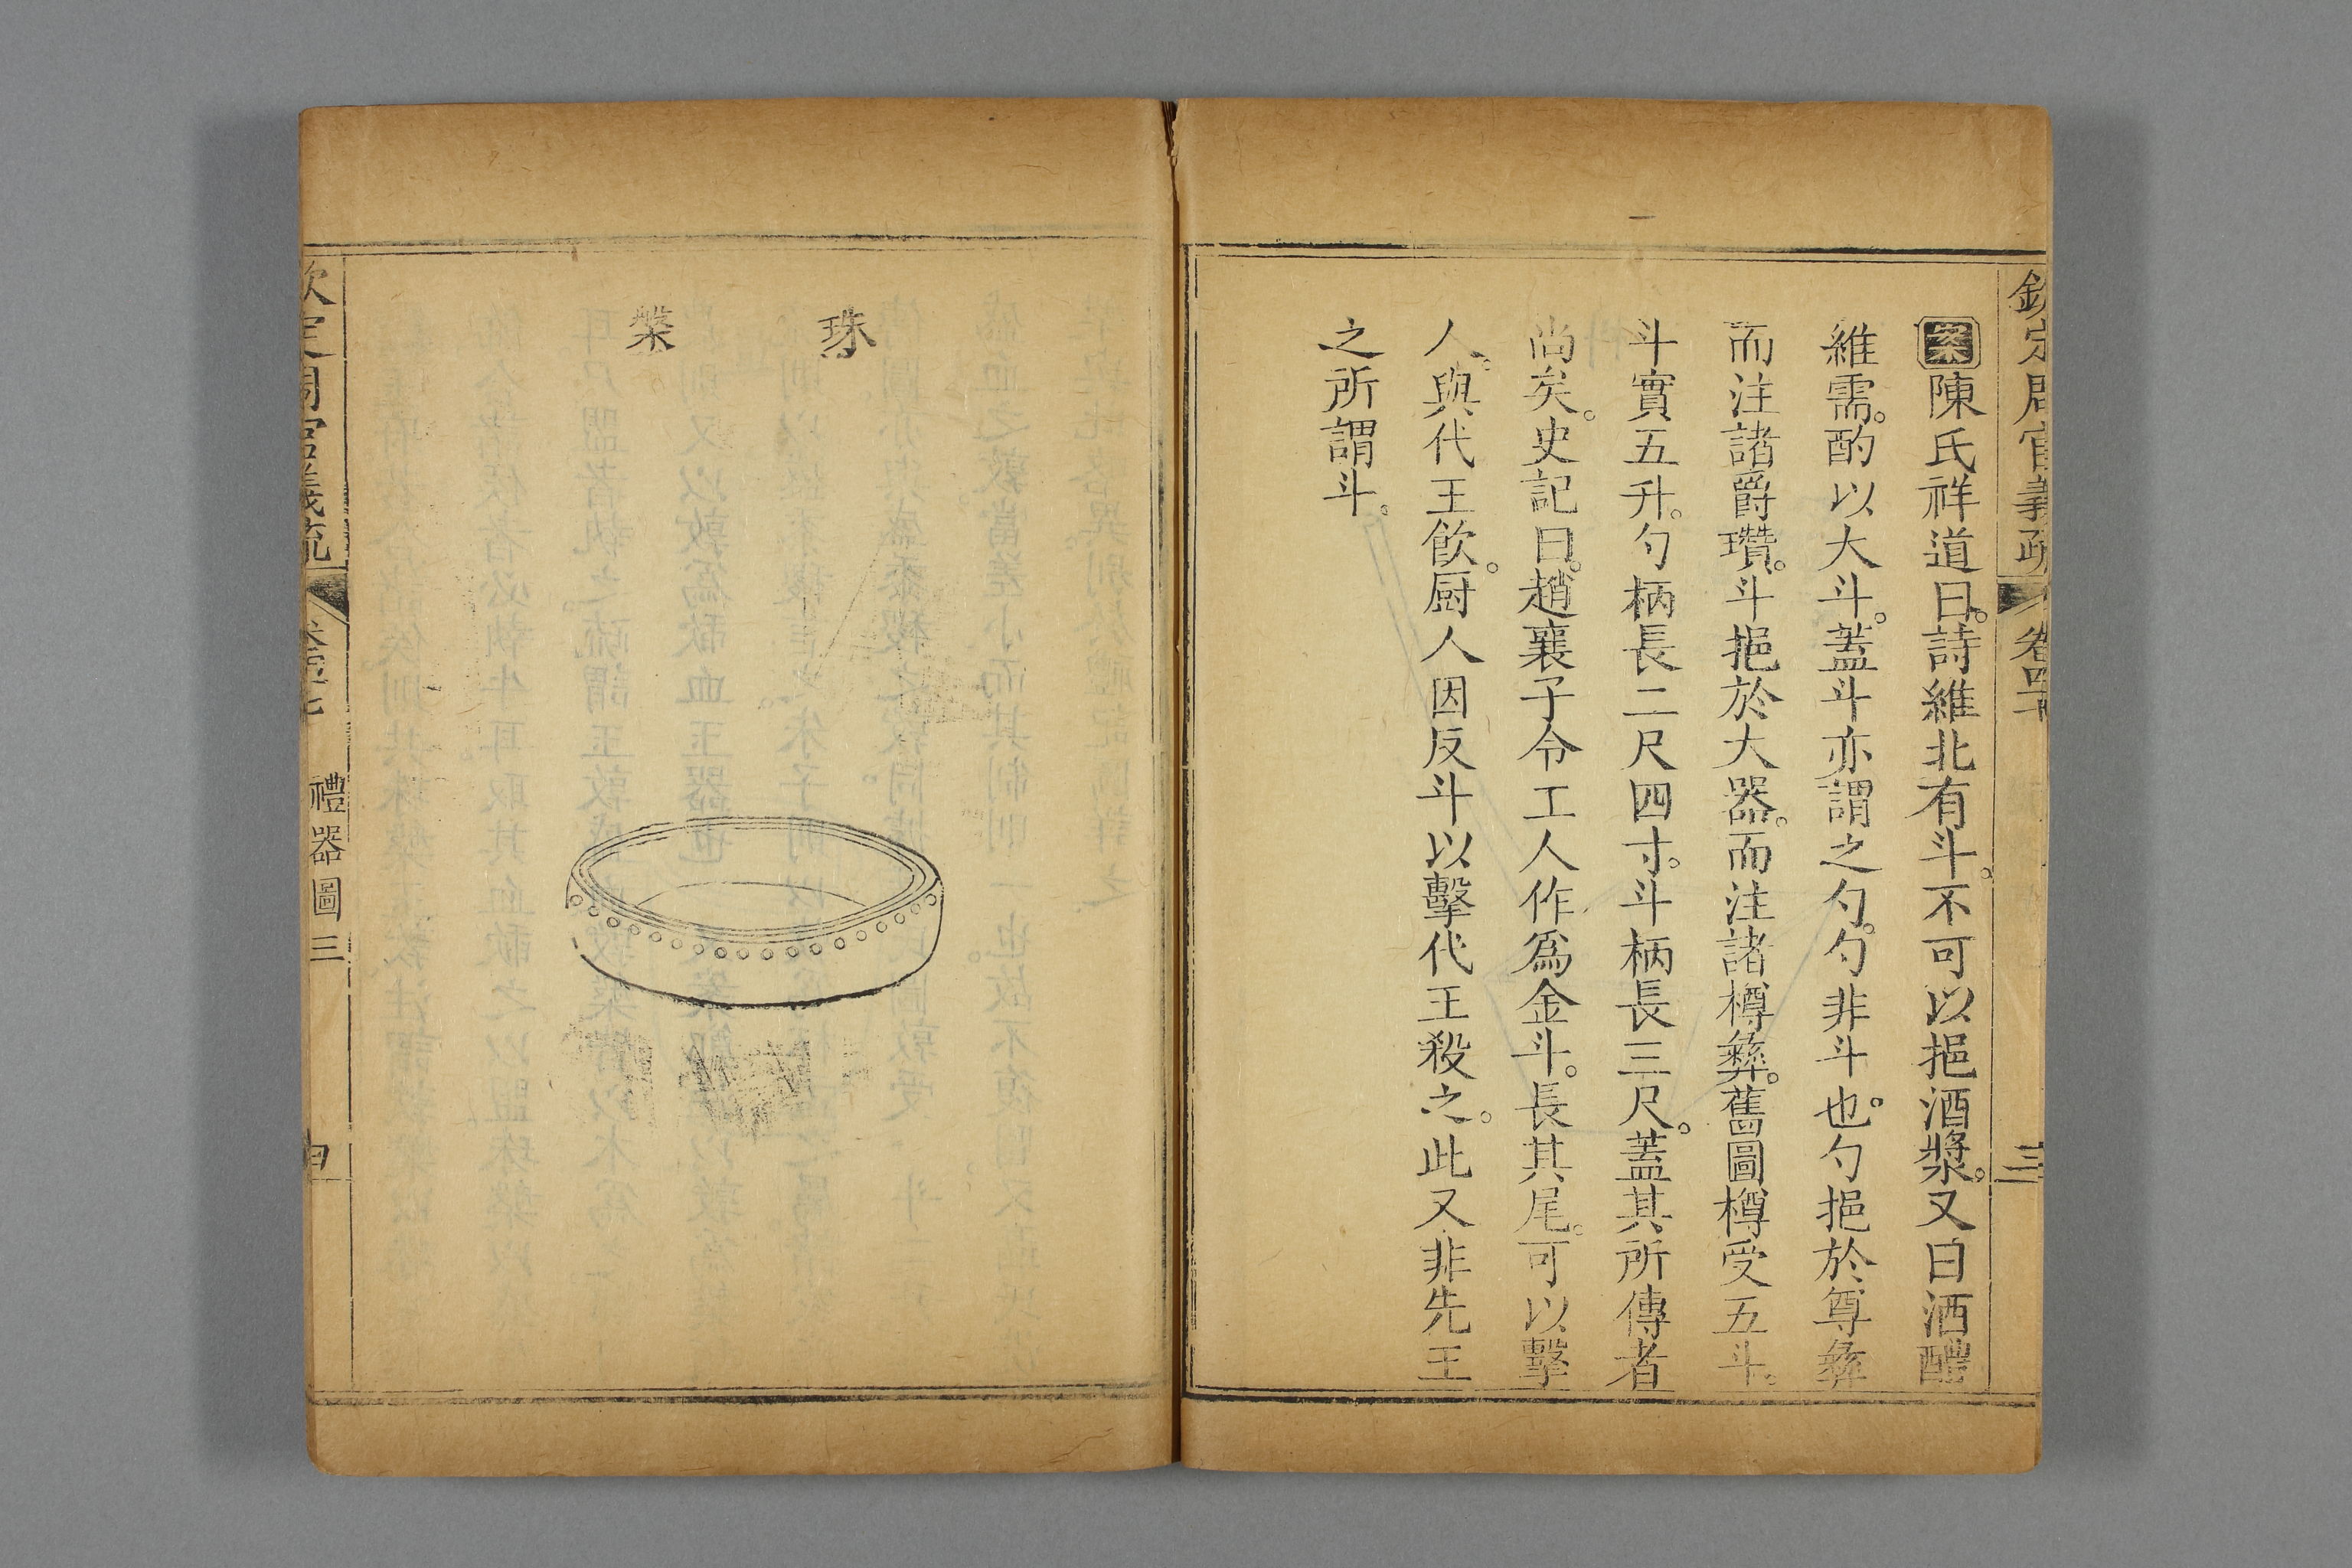 欽定周官義疏 卷四十 三
案陳氏祥道曰。詩維北有斗。不可以挹酒漿。又曰酒醴
維需。酌以大斗。蓋斗亦謂之勺。勺非斗也。勺挹於尊彝
而注諸爵瓚。斗挹於大器。而注諸樽彝。舊圖樽受五斗。
斗實五升。勺柄長二尺四寸。斗柄長三尺。蓋其所傳者
尚矣。史記曰。趙襄子令工人作爲金斗。長其尾。可以擊
人。與代王飲。厨人因反斗以擊代王殺之。此又非先王
之所謂斗。
珠
槃
欽定周官義疏 禮器圖三